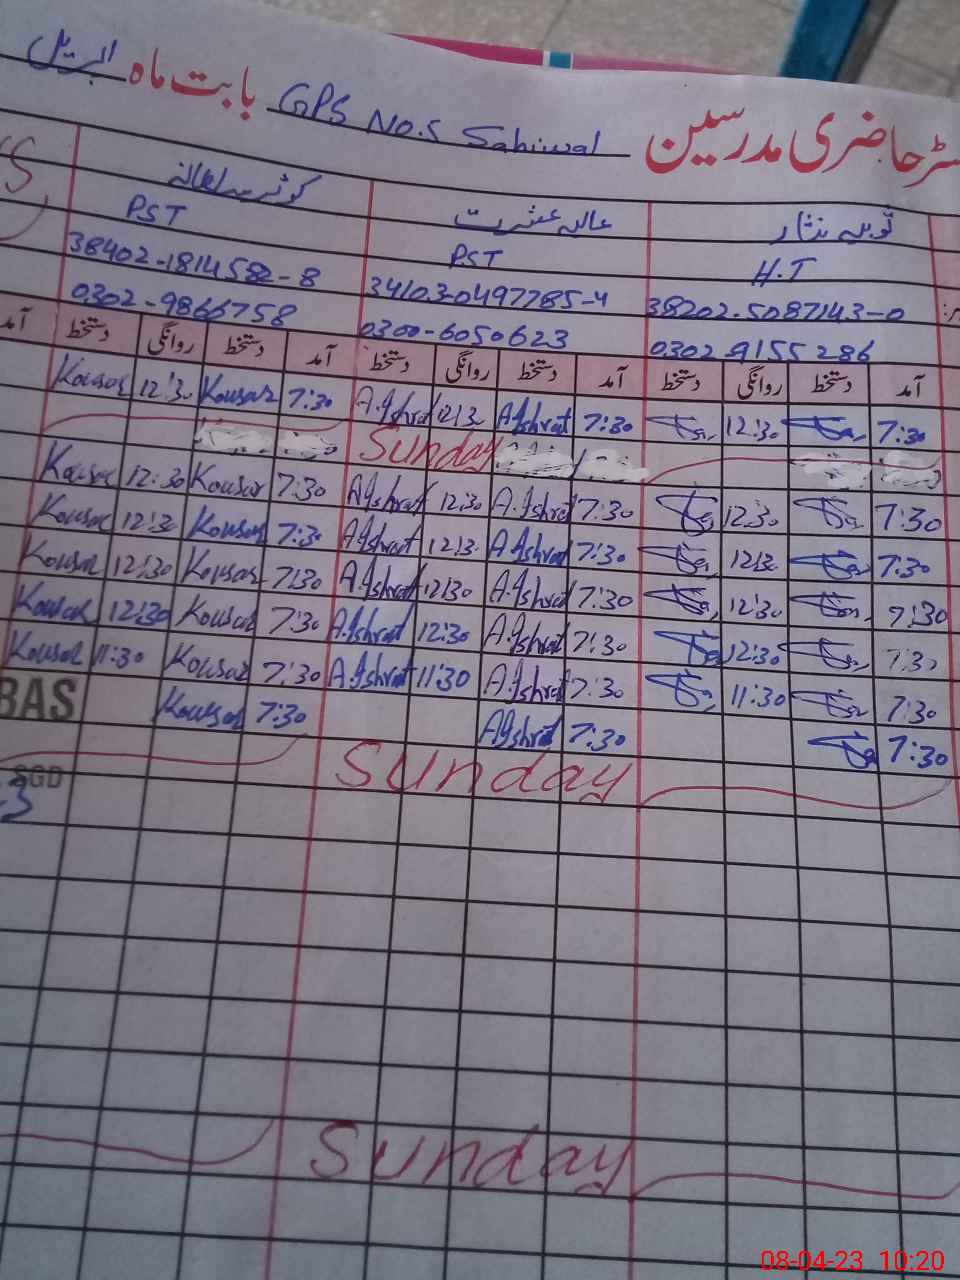 رجسٹر حاضری مدرسین GPS No.5 Sahiwal بابت ماہ اپریل
عالیہ عشرت
PST PST H.T
38402-1814582-8 34103-0497785-4 38202-5087143-0
0302-9866758 0300-6050623 0302-9155286
آمد دستخط روانگی دستخط آمد دستخط روانگی دستخط آمد دستخط روانگی دستخط آمد
Kousar 12:30 Kousar 7:30 A.Ishrat 12:30 A.Ishrat 7:30 12:30 7:30
Sunday
Kousar 12:30 Kousar 7:30 A.Ishrat 12:30 A.Ishrat 7:30 12:30 7:30
Kousar 12:30 Kousar 7:30 A.Ishrat 12:30 A.Ishrat 7:30 12:30 7:30
Kousar 12:30 Kousar 7:30 A.Ishrat 12:30 A.Ishrat 7:30 12:30 7:30
Kousar 12:30 Kousar 7:30 A.Ishrat 12:30 A.Ishrat 7:30 12:30 7:30
Kousar 11:30 Kousar 7:30 A.Ishrat 11:30 A.Ishrat 7:30 11:30 7:30
BAS Kousar 7:30 A.Ishrat 7:30 7:30
SGD Sunday
Sunday
08-04-23 10:20